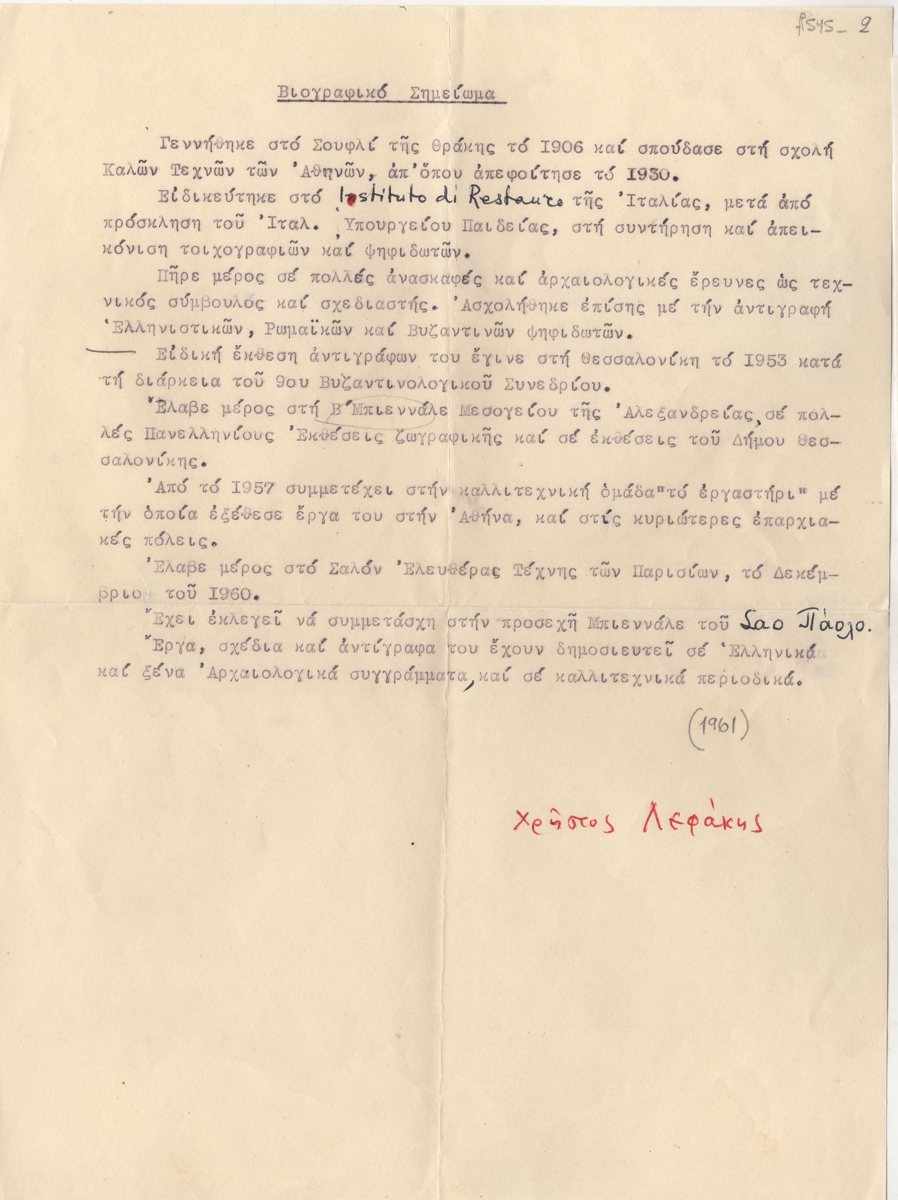 2
Βιογραφικό Σημείωμα
Γεννήθηκε στό Σουφλί τῆς Θράκης τό 1906 καί σπούδασε στή σχολή
Καλῶν Τεχνῶν τῶν Ἀθηνῶν, ἀπ'ὅπου ἀπεφοίτησε τό 1930.
Εἰδικεύτηκε στό Instituto di Restauro τῆς Ἰταλίας, μετά ἀπό
πρόσκληση τοῦ Ἰταλ. Ὑπουργείου Παιδείας, στή συντήρηση καί ἀπει-
κόνιση τοιχογραφιῶν καί ψηφιδωτῶν.
Πῆρε μέρος σέ πολλές ἀνασκαφές καί ἀρχαιολογικές ἔρευνες ὡς τεχ-
νικός σύμβουλος καί σχεδιαστής. Ἀσχολήθηκε ἐπίσης μέ τήν ἀντιγραφή
Ἑλληνιστικῶν, Ρωμαϊκῶν καί Βυζαντινῶν ψηφιδωτῶν.
Εἰδική ἔκθεση ἀντιγράφων του ἔγινε στή Θεσσαλονίκη τό 1953 κατά
τή διάρκεια τοῦ 9ου Βυζαντινολογικοῦ Συνεδρίου.
Ἔλαβε μέρος στή Β΄Μπιεννάλε Μεσογείου τῆς Ἀλεξανδρείας, σέ πολ-
λές Πανελληνίους Ἐκθέσεις ζωγραφικῆς καί σέ ἐκθέσεις τοῦ Δήμου Θεσ-
σαλονίκης.
Ἀπό τό 1957 συμμετέχει στήν καλλιτεχνική ὁμάδα"τό ἐργαστήρι" μέ
τήν ὁποία ἐξέθεσε ἔργα του στήν Ἀθήνα, καί στίς κυριώτερες ἐπαρχια-
κές πόλεις.
Ἔλαβε μέρος στό Σαλόν Ἐλευθέρας Τέχνης τῶν Παρισίων, τό Δεκέμ-
βριο τοῦ 1960.
Ἔχει ἐκλεγεῖ νά συμμετάσχη στήν προσεχῆ Μπιεννάλε τοῦ Sao Πάολο.
Ἔργα, σχέδια καί ἀντίγραφα του ἔχουν δημοσιευτεῖ σέ Ἑλληνικά
καί ξένα Ἀρχαιολογικά συγγράμματα, καί σέ καλλιτεχνικά περιοδικά.
(1961)
Χρῆστος Λεφάκης